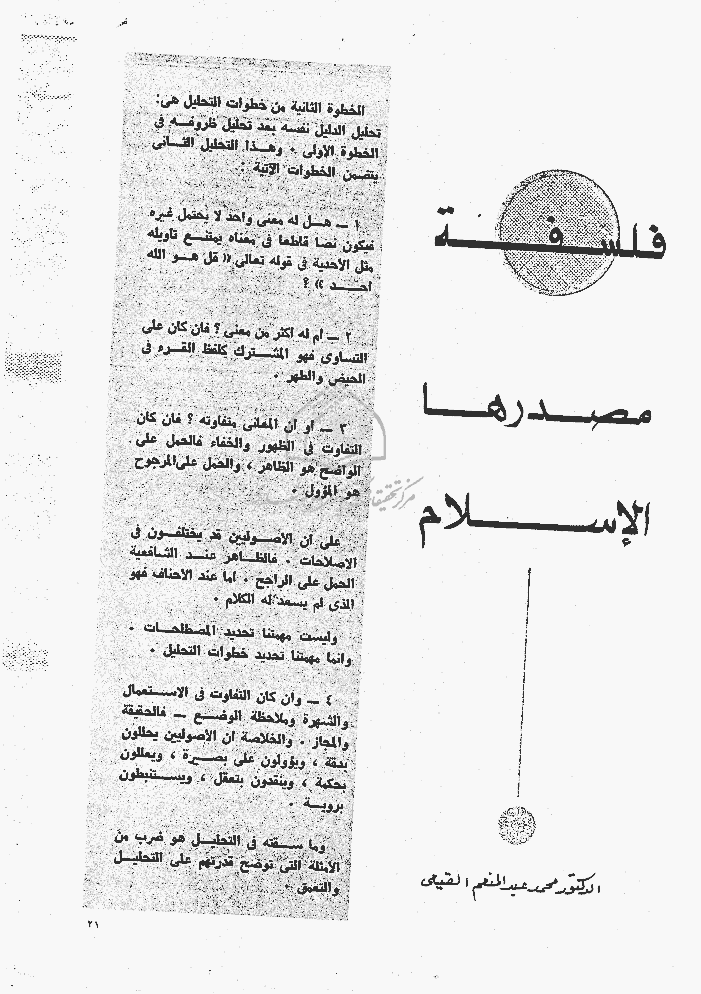 فلسفة
مصدرها
الإسلام
الدكتور محمد عبد المنعم القيعى
الخطوة الثانية من خطوات التحليل هى:
تحليل الدليل نفسه بعد تحليل ظروفه فى
الخطوة الاولى . وهذا التحليل الثانى
يتضمن الخطوات الآتية :
١ — هل له معنى واحد لا يحتمل غيره
فيكون نصا قاطعا فى معناه يمتنع تاويله
مثل الأحدية فى قوله تعالى (( قل هو الله
احد )) ؟
٢ — ام له اكثر من معنى ؟ فان كان على
التساوى فهو المشترك كلفظ القرء فى
الحيض والطهر .
٣ — او ان المعانى متفاوته ؟ فان كان
التفاوت فى الظهور والخفاء فالحمل على
الواضح هو الظاهر ، والحمل على المرجوح
هو المؤول .
على ان الأصوليين قد يختلفون فى
الاصلاحات . فالظاهر عند الشافعية
الحمل على الراجح . اما عند الأحناف فهو
الذى لم يسعد له الكلام .
وليست مهمتنا تحديد المصطلحات .
وانما مهمتنا تحديد خطوات التحليل .
٤ — وان كان التفاوت فى الاستعمال
والشهرة وملاحظة الوضع — فالحقيقة
والمجاز . والخلاصة ان الأصوليين يحللون
بدقة ، ويؤولون على بصيرة ، ويعللون
بحكمة ، وينقدون بتعقل ، ويستنبطون
بروية .
وما سقته فى التحليل هو ضرب من
الأمثلة التى توضح قدرتهم على التحليل
والتعمق .
٢١